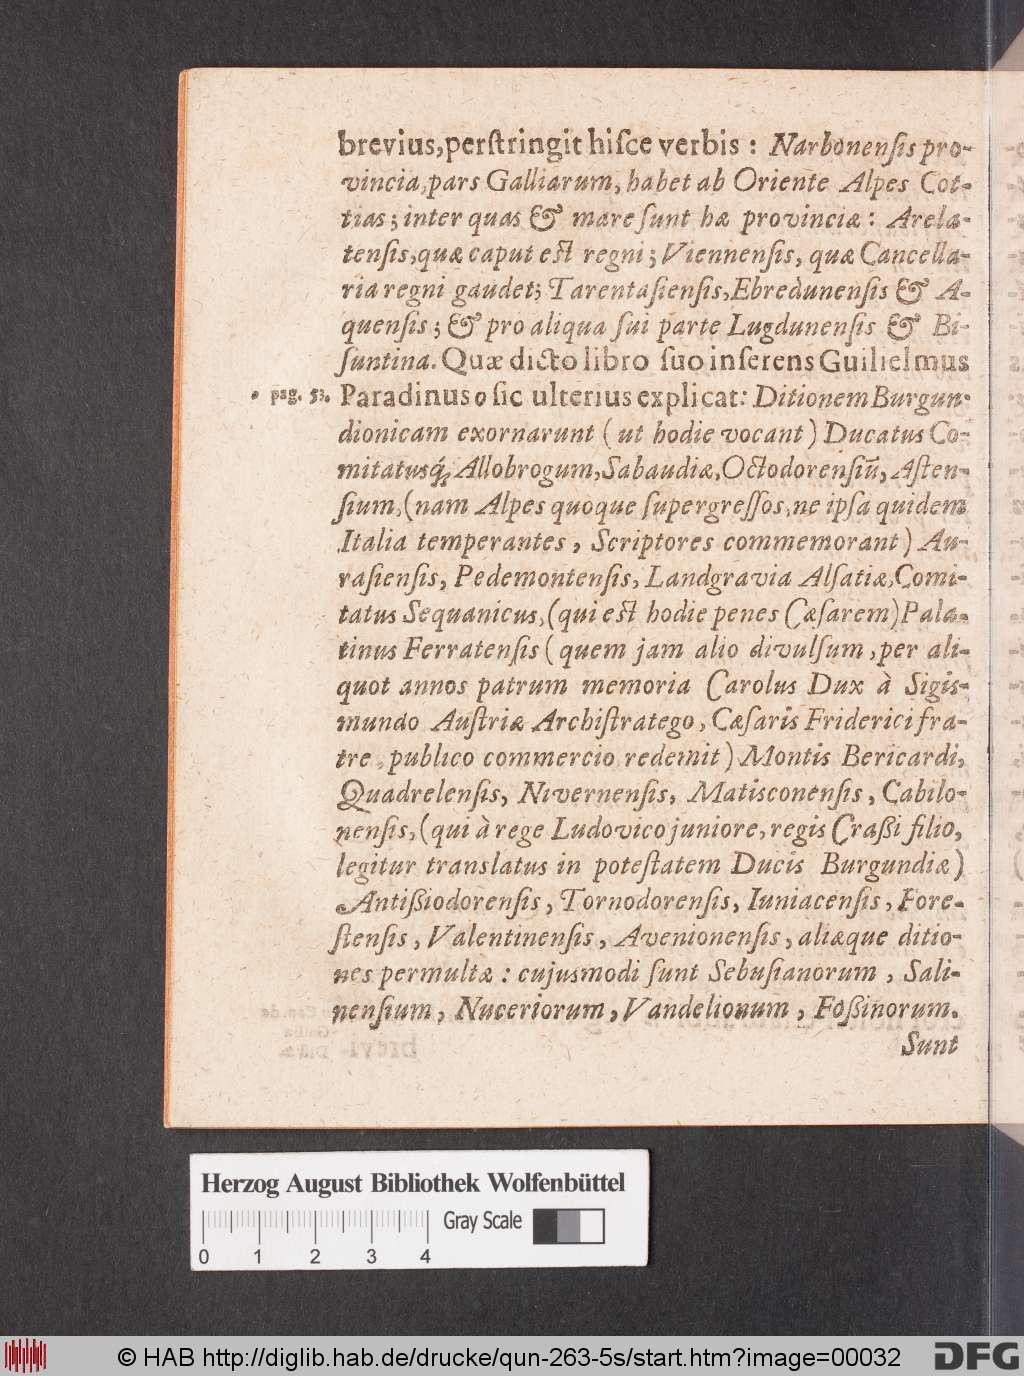 brevius, perſtringit hiſce verbis : Narbonenſis pro-
vincia, pars Galliarum, habet ab Oriente Alpes Cot-
tias; inter quas & mare ſunt hæ provinciæ : Arela-
tenſis, quæ caput eſt regni; Viennenſis, quæ Cancella-
ria regni gaudet; Tarentaſienſis, Ebredunenſis & A-
quenſis; & pro aliqua ſui parte Lugdunenſis & Bi-
ſuntina. Quæ dicto libro ſuo inſerens Guilielmus
• pag. 53. Paradinus o ſic ulterius explicat: Ditionem Burgun-
dionicam exornarunt ( ut hodie vocant ) Ducatus Co-
mitatusq́; Allobrogum, Sabaudiæ, Octodorenſiū, Aſten-
ſium, (nam Alpes quoque ſupergreſſos, ne ipſa quidem
Italia temperantes, Scriptores commemorant ) Au-
raſienſis, Pedemontenſis, Landgravia Alſatiæ, Comi-
tatus Sequanicus, (qui eſt hodie penes Cæſarem) Pala-
tinus Ferratenſis ( quem jam alio divulſum, per ali-
quot annos patrum memoria Carolus Dux à Sigis-
mundo Auſtriæ Archiſtratego, Cæſaris Friderici fra-
tre, publico commercio redemit ) Montis Bericardi,
Quadrelenſis, Nivernenſis, Matisconenſis, Cabilo-
nenſis, (qui à rege Ludovico juniore, regis Craßi filio,
legitur translatus in poteſtatem Ducis Burgundiæ )
Antißiodorenſis, Tornodorenſis, Iuniacenſis, Fore-
ſtenſis, Valentinenſis, Avenionenſis, aliæque ditio-
nes permultæ : cujusmodi ſunt Sebuſianorum, Sali-
nenſium, Nuceriorum, Vandelionum, Foßinorum.
Sunt
Herzog August Bibliothek Wolfenbüttel
Gray Scale
0 1 2 3 4
© HAB http://diglib.hab.de/drucke/qun-263-5s/start.htm?image=00032
DFG